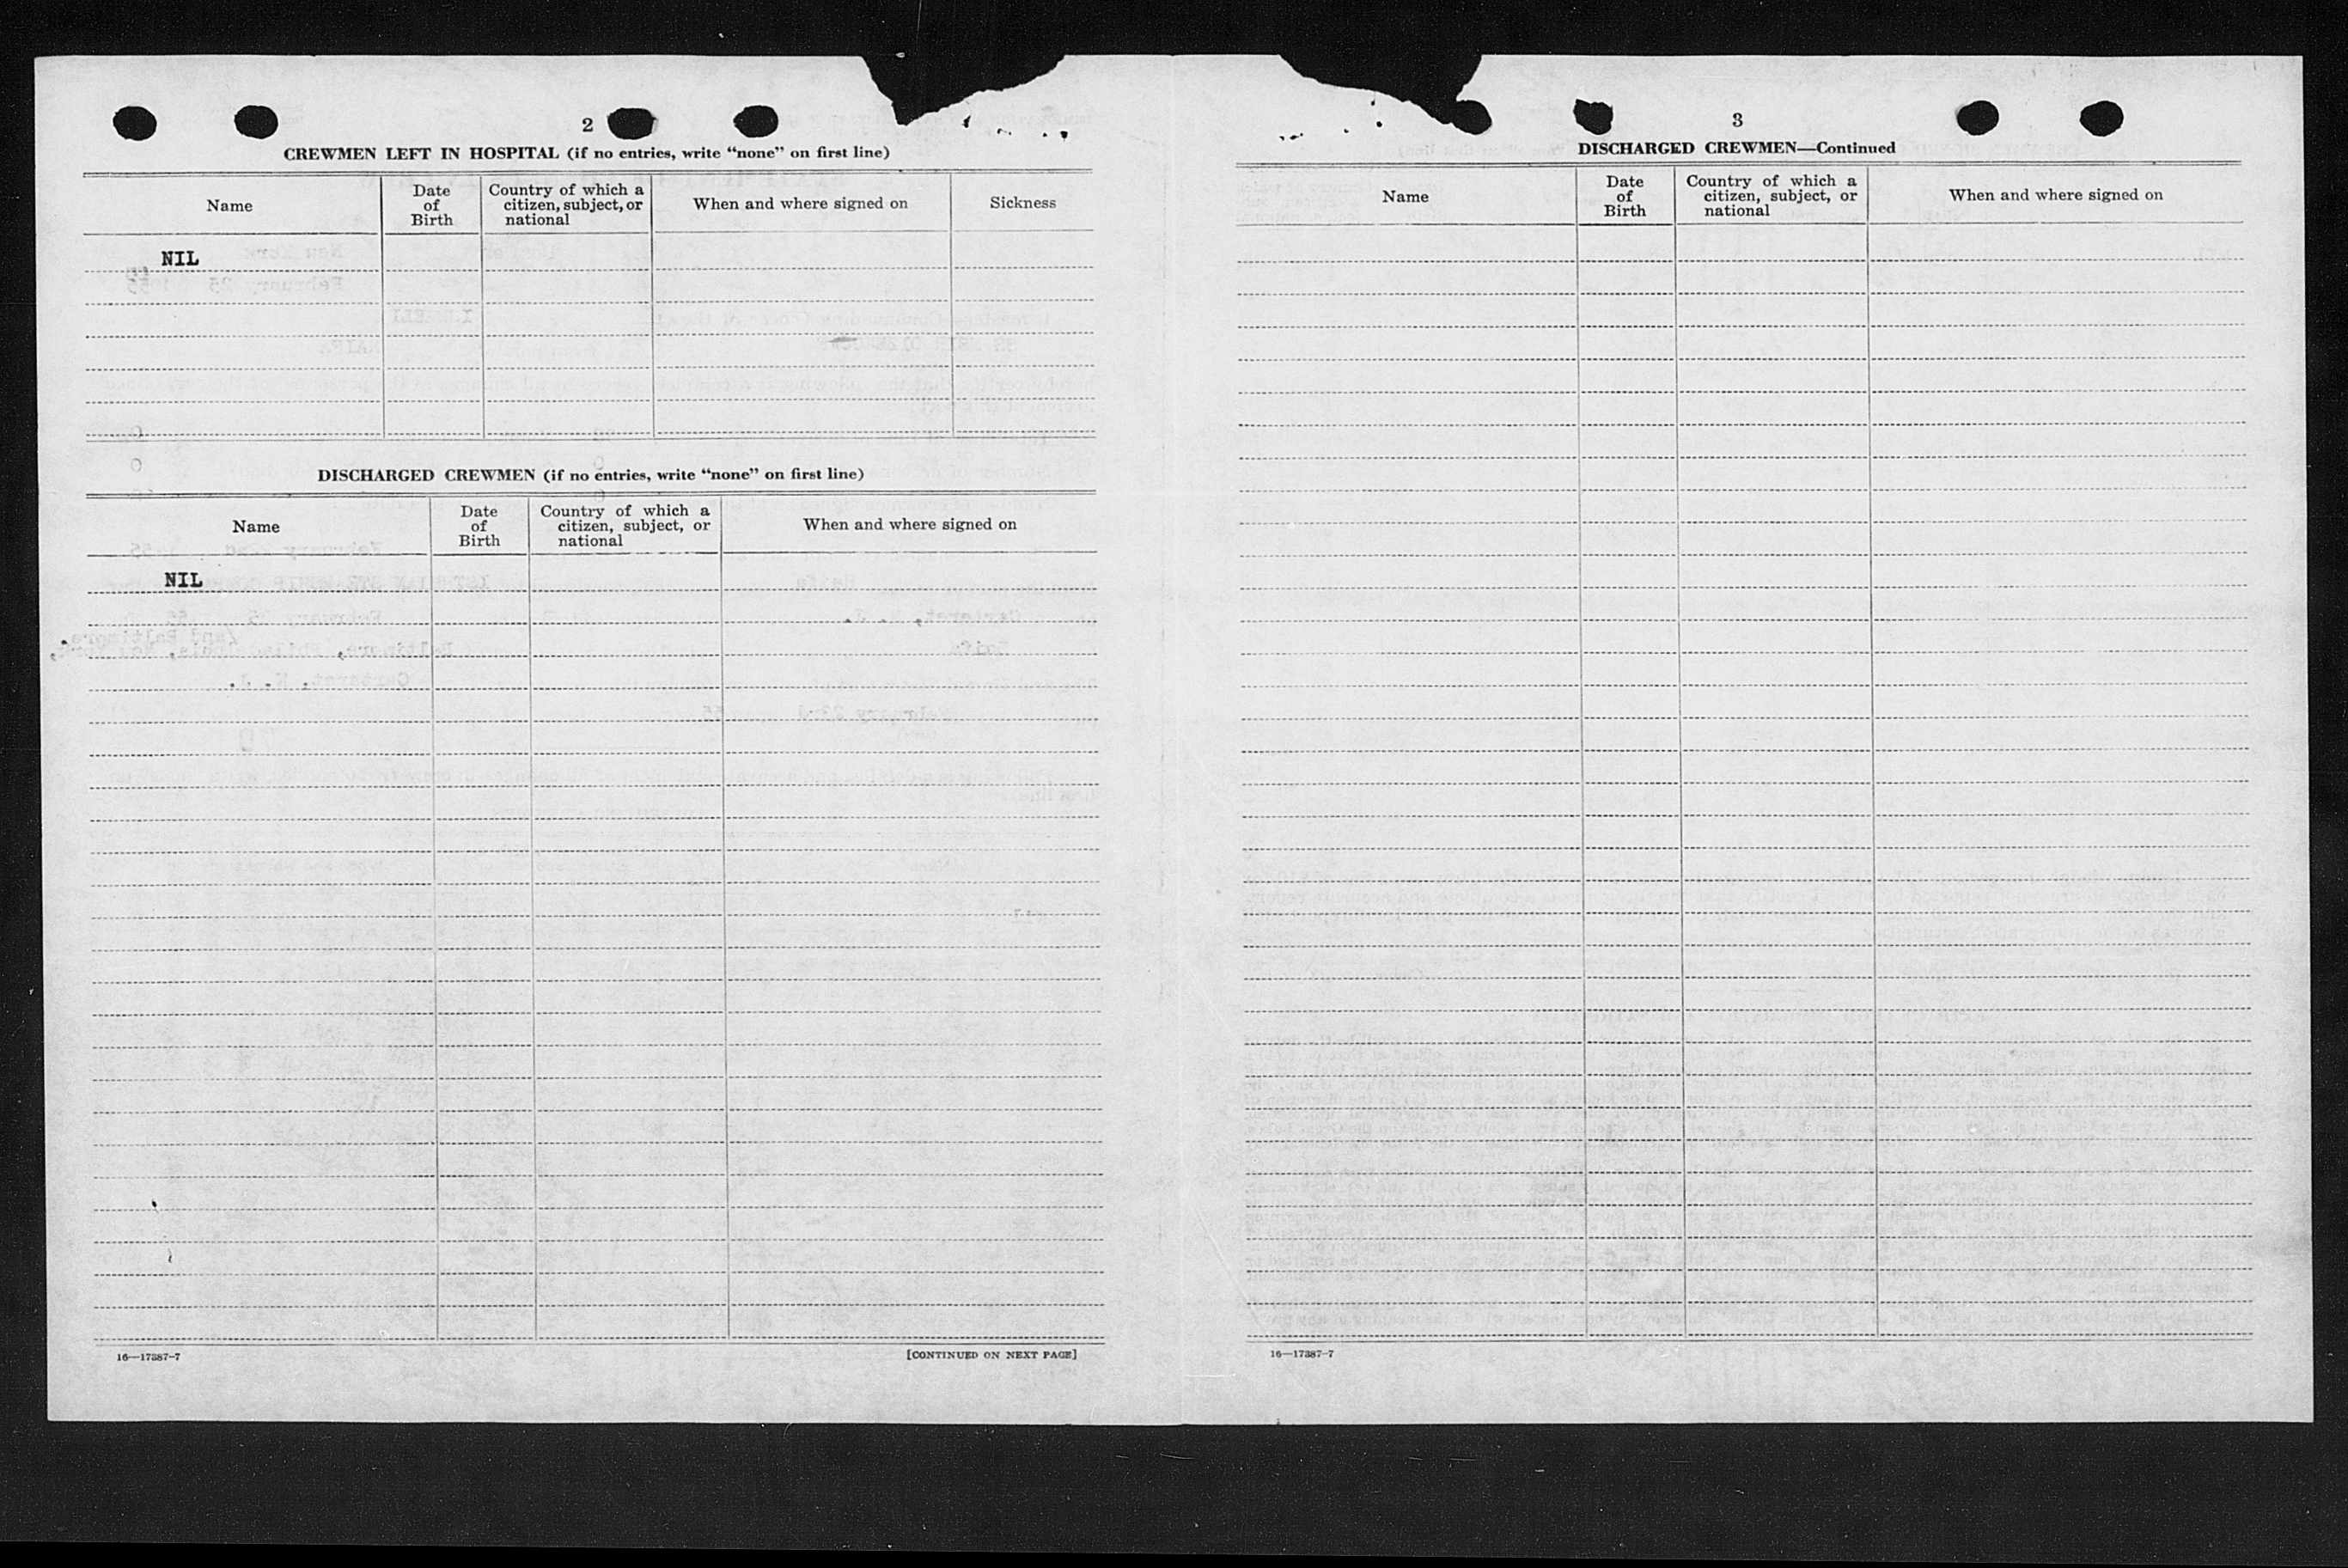 2
CREWMEN LEFT IN HOSPITAL (if no entries, write “none” on first line)
Name
Date of Birth
Country of which a citizen, subject, or national
When and where signed on
Sickness
NIL
DISCHARGED CREWMEN (if no entries, write “none” on first line)
Name
Date of Birth
Country of which a citizen, subject, or national
When and where signed on
NIL
16—17387-7
[CONTINUED ON NEXT PAGE]
3
DISCHARGED CREWMEN—Continued
Name
Date of Birth
Country of which a citizen, subject, or national
When and where signed on
16—17387-7